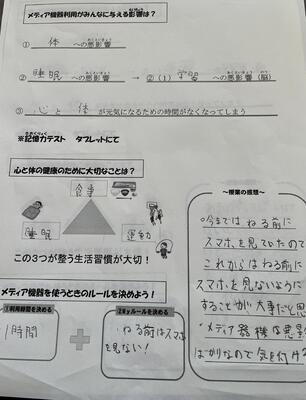 メディア機器利用がみんなに与える影響は？
① 体 への悪影響
② 睡眠 への悪影響 → ②(1) 学習 への悪影響（脳）
③ 心 と 体 が元気になるための時間がなくなってしまう
※記憶力テスト タブレットにて
心と体の健康のために大切なことは？
食事
睡眠 運動
この3つが整う生活習慣が大切！
メディア機器を使うときのルールを決めよう！
1利用時間を決める
1時間
2Myルールを決める
ねる前はスマホ
を見ない！
～授業の感想～
○今まではねる前に
スマホを見てたので
これからはねる前に
スマホを見ないように
することが大事だと思
メディア器機は悪影
ばかりなので気を付ける